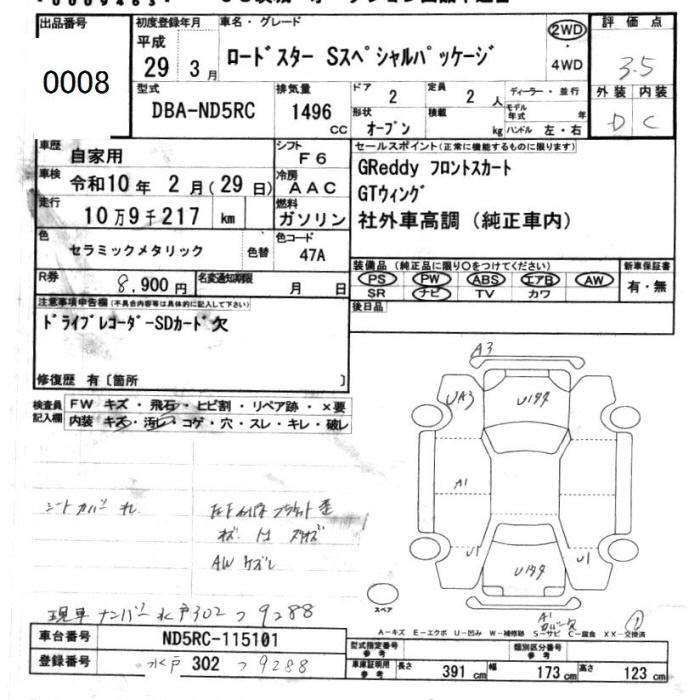 出品番号
0008
初度登録年月
平成
29年 3月
車名・グレード
ロードスター Sスペシャルパッケージ
2WD
・
4WD
評価点
3.5
外装 内装
D C
型式
DBA-ND5RC
排気量
1496 cc
ドア 2
定員 2 人
形状 オープン
積載 kg
ディーラー・並行
モデル年式 年
ハンドル 左・右
車歴 自家用
シフト F6
車検 令和10年 2月(29日)
冷房 AAC
走行 10万9千217 km
燃料 ガソリン
色 セラミックメタリック 色替
色コード 47A
R券 8,900円
名変通知期限 月 日
セールスポイント(正常に機能するものに限ります)
GReddy フロントスカート
GTウィング
社外車高調(純正車内)
装備品(純正品に限り〇をつけてください)
PS PW ABS エアB AW
SR ナビ TV カワ
新車保証書
有・無
後日品
注意事項申告欄(不具合内容等は具体的に記入して下さい)
ドライブレコーダーSDカード欠
修復歴 有〔箇所 〕
検査員記入欄
FW キズ・飛石・ヒビ割・リペア跡・×要
内装 キズ・汚レ・コゲ・穴・スレ・キレ・破レ
シートカバー
AW ケズレ
A3
UA3
A1
U1
U1
A1
スペア
現車 ナンバー 水戸302 つ 9288
A－キズ E－エクボ U－凹み W－補修跡 S－サビ C－腐食 XX－交換済
車台番号 ND5RC-115101
登録番号 水戸 302 つ 9288
型式指定番号 参考
類別区分番号 参考
車庫証明用 参考
長さ 391 cm 幅 173 cm 高さ 123 cm